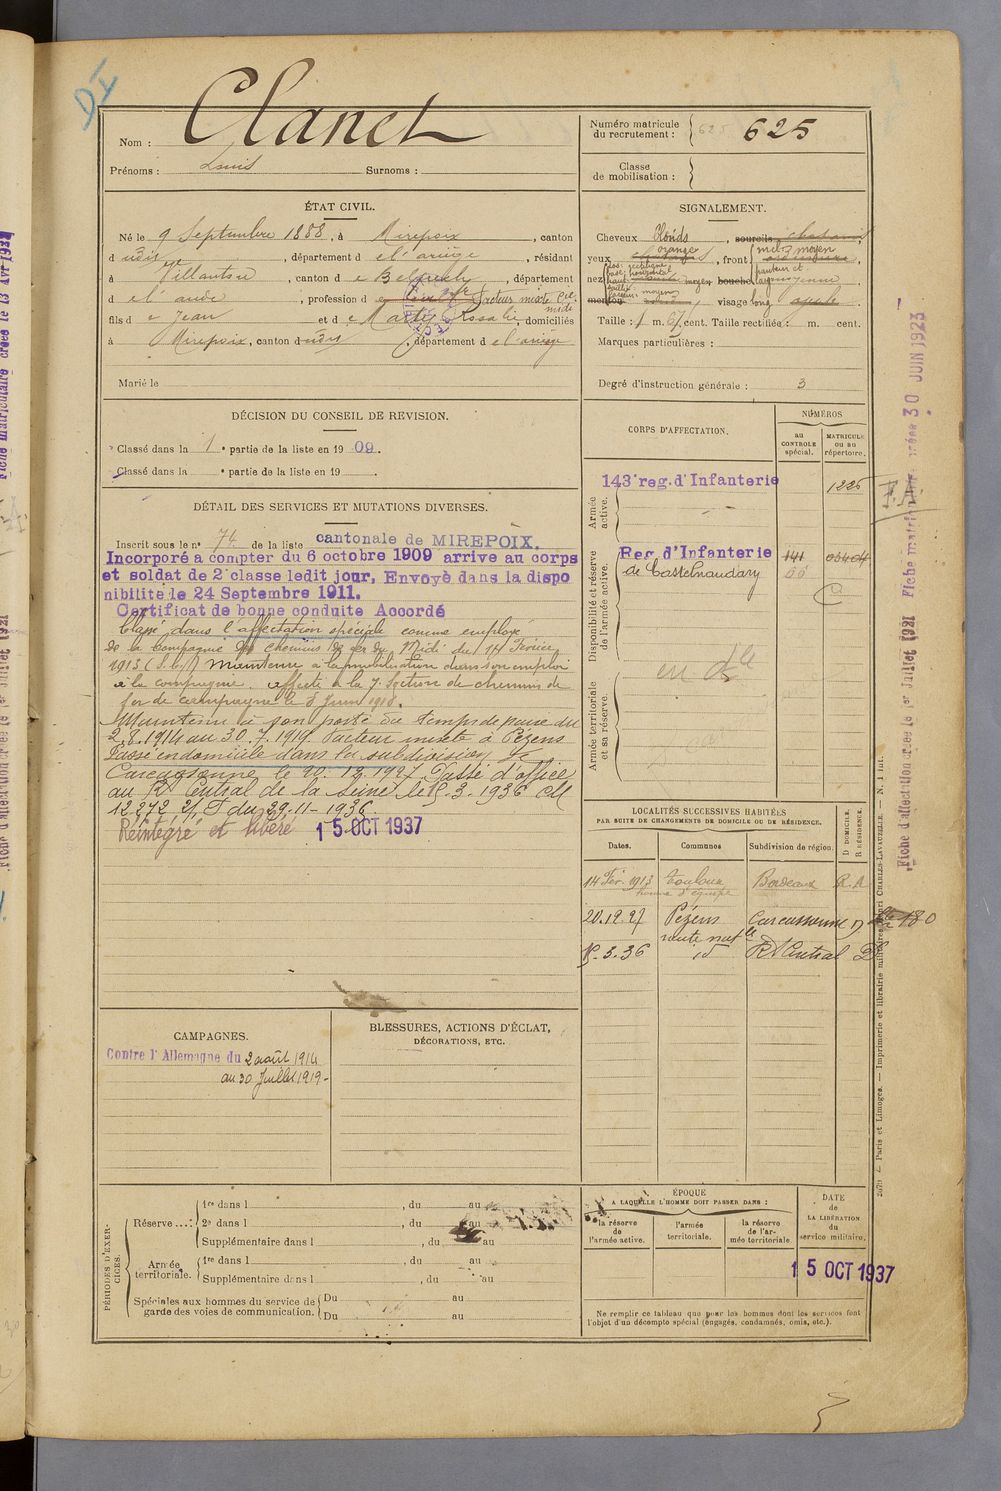 DI
Clanet
Nom :
Prénoms : Louis Surnoms :
Numéro matricule du recrutement : 625
Classe de mobilisation :
ÉTAT CIVIL.
Né le 9 Septembre 1888, à Mirepoix, canton
dudit, département de l'ariège, résidant
à Villautou, canton de Belpech, département
de l'aude, profession de facteur mixte Cie midi
fils de Jean et de Marty Rosalie, domiciliés
à Mirepoix, canton dudit, département de l'ariège
Marié le
SIGNALEMENT.
Cheveux blonds, sourcils
yeux orangé, front moyen
nez moyen bouche moyenne
menton visage long
Taille : 1 m. 67 cent. Taille rectifiée : m. cent.
Marques particulières :
Degré d'instruction générale : 3
DÉCISION DU CONSEIL DE REVISION.
Classé dans la 1e partie de la liste en 1909.
Classé dans la e partie de la liste en 19
DÉTAIL DES SERVICES ET MUTATIONS DIVERSES.
Inscrit sous le n° 74 de la liste cantonale de MIREPOIX.
Incorporé a compter du 6 octobre 1909 arrive au corps
et soldat de 2e classe ledit jour. Envoyé dans la dispo
nibilité le 24 Septembre 1911.
Certificat de bonne conduite Accordé
Classé dans l'affectation spéciale comme employé
de la Compagnie des chemins de fer du Midi du 14 Février
1913 maintenu à la mobilisation dans son emploi
à la compagnie. affecté à la 7. Section de chemins de
fer de campagne le 5 Juin 1918.
Maintenu à son poste du temps de paix du
2.8.1914 au 30.7.1919. facteur mixte à Pézens
Passé en domicile dans la subdivision de
Carcassonne le 20.12.1927 Passé d'office
au Rt Central de la Seine le 15-3-1936 CM
12.872 2/T du 29-11-1936
Réintégré et libéré 15 OCT 1937
CORPS D'AFFECTATION.
NUMÉROS
au contrôle spécial.
matricule ou au répertoire.
Armée active.
143e reg. d'Infanterie 1225
Disponibilité et réserve de l'armée active.
Reg. d'Infanterie 141
de Castelnaudary
Armée territoriale et sa réserve.
en dle
LOCALITÉS SUCCESSIVES HABITÉES
PAR SUITE DE CHANGEMENTS DE DOMICILE OU DE RÉSIDENCE.
Dates. Communes Subdivision de région. D domicile. R résidence.
14 Fév. 1913 Toulouse Bordeaux R.A
homme d'équipe
20.12.27 Pézens Carcassonne D
route natle
15-3-36 id Rt Central D
CAMPAGNES.
Contre l'Allemagne du 2 août 1914
au 30 Juillet 1919-
BLESSURES, ACTIONS D'ÉCLAT,
DÉCORATIONS, ETC.
PÉRIODES D'EXERCICES.
Réserve...: 1re dans l , du au
2e dans l , du au
Supplémentaire dans l , du au
Armée territoriale. 1re dans l , du au
Supplémentaire dans l , du au
Spéciales aux hommes du service de garde des voies de communication. Du au
Du au
ÉPOQUE
A LAQUELLE L'HOMME DOIT PASSER DANS :
la réserve de l'armée active.
l'armée territoriale.
la réserve de l'armée territoriale.
DATE de LA LIBÉRATION du service militaire.
15 OCT 1937
Ne remplir ce tableau que pour les hommes dont les services font
l'objet d'un décompte spécial (engagés, condamnés, omis, etc.).
Paris et Limoges. — Imprimerie et librairie militaires Henri CHARLES-LAVAUZELLE. — N. 1 int.
Fiche d'affectation créée le 1er Juillet 1921 Fiche matriculaire créée 30 JUIN 1923
F.A